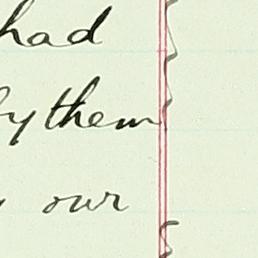 had
by them
our